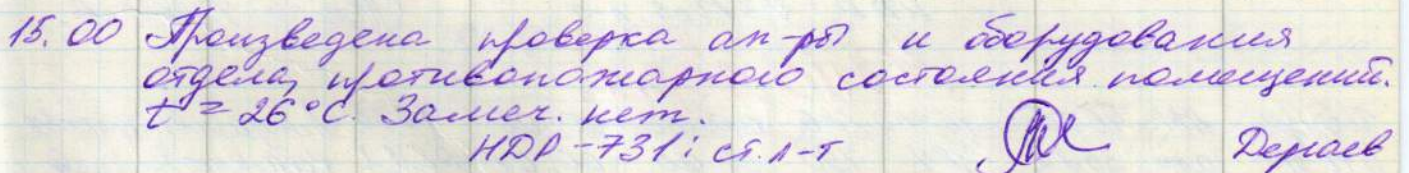 15.00 Произведена проверка ап-ры и оборудования
отдела, противопожарного состояния помещений.
t = 26°C. Замеч. нет.
НДР-731: ст. л-т